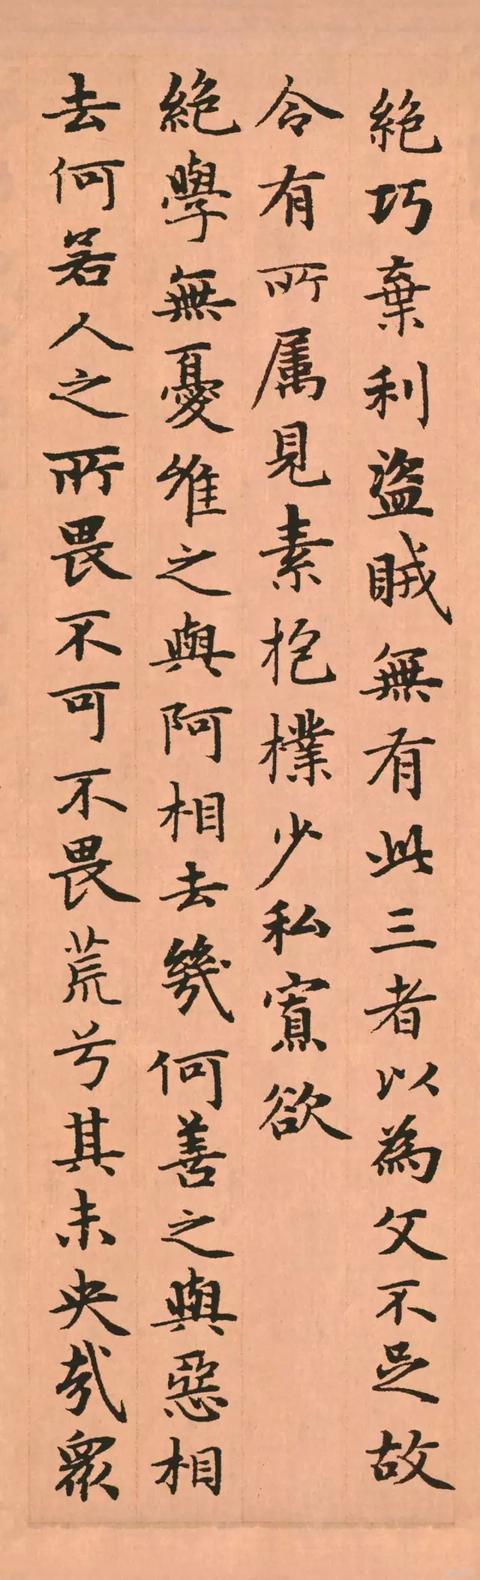 絶巧棄利盜賊無有此三者以為文不足故
令有所属見素抱樸少私寡欲
絶學無憂唯之與阿相去幾何善之與惡相
去何若人之所畏不可不畏荒兮其未央哉衆